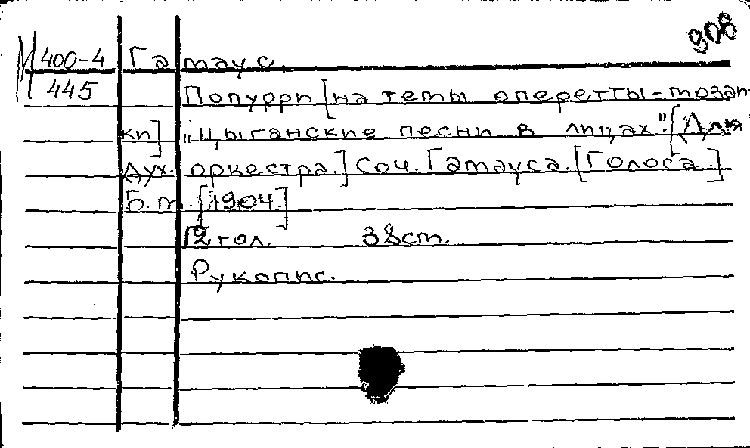 908
М 400-4 Гатаус.
445 Попурри [на темы оперетты-мозаи-
ки] "Цыганские песни в лицах". [Для
дух. оркестра.] Соч. Гатауса. [Голоса.]
Б.м. [1904]
12 гол. 38 ст.
Рукопис.